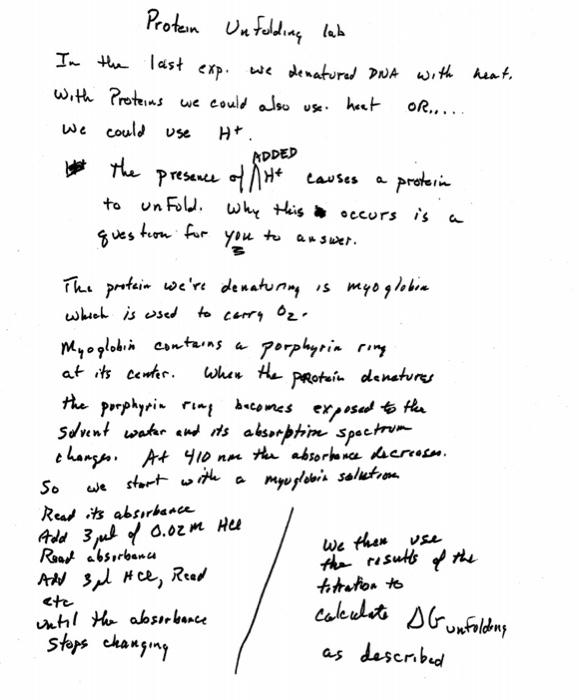 Protein Unfolding lab
In the last exp. we denatured DNA with heat.
With Proteins we could also use heat OR.....
We could use H+.
ADDED
The presence of H+ causes a protein
to unFold. Why this occurs is a
question for you to answer.
The protein we're denaturing is myoglobin
which is used to carry O2.
Myoglobin contains a porphyrin ring
at its center. When the pRotein denatures
the porphyrin ring becomes exposed to the
solvent water and its absorptive spectrum
changes. At 410 nm the absorbance decreases.
So we start with a myoglobin solution
Read its absorbance
Add 3 µl of 0.02 M HCl
Read absorbance
Add 3 µl HCl, Read
etc
until the absorbance
Stops changing
We then use
the results of the
titration to
calculate ΔG unfolding
as described